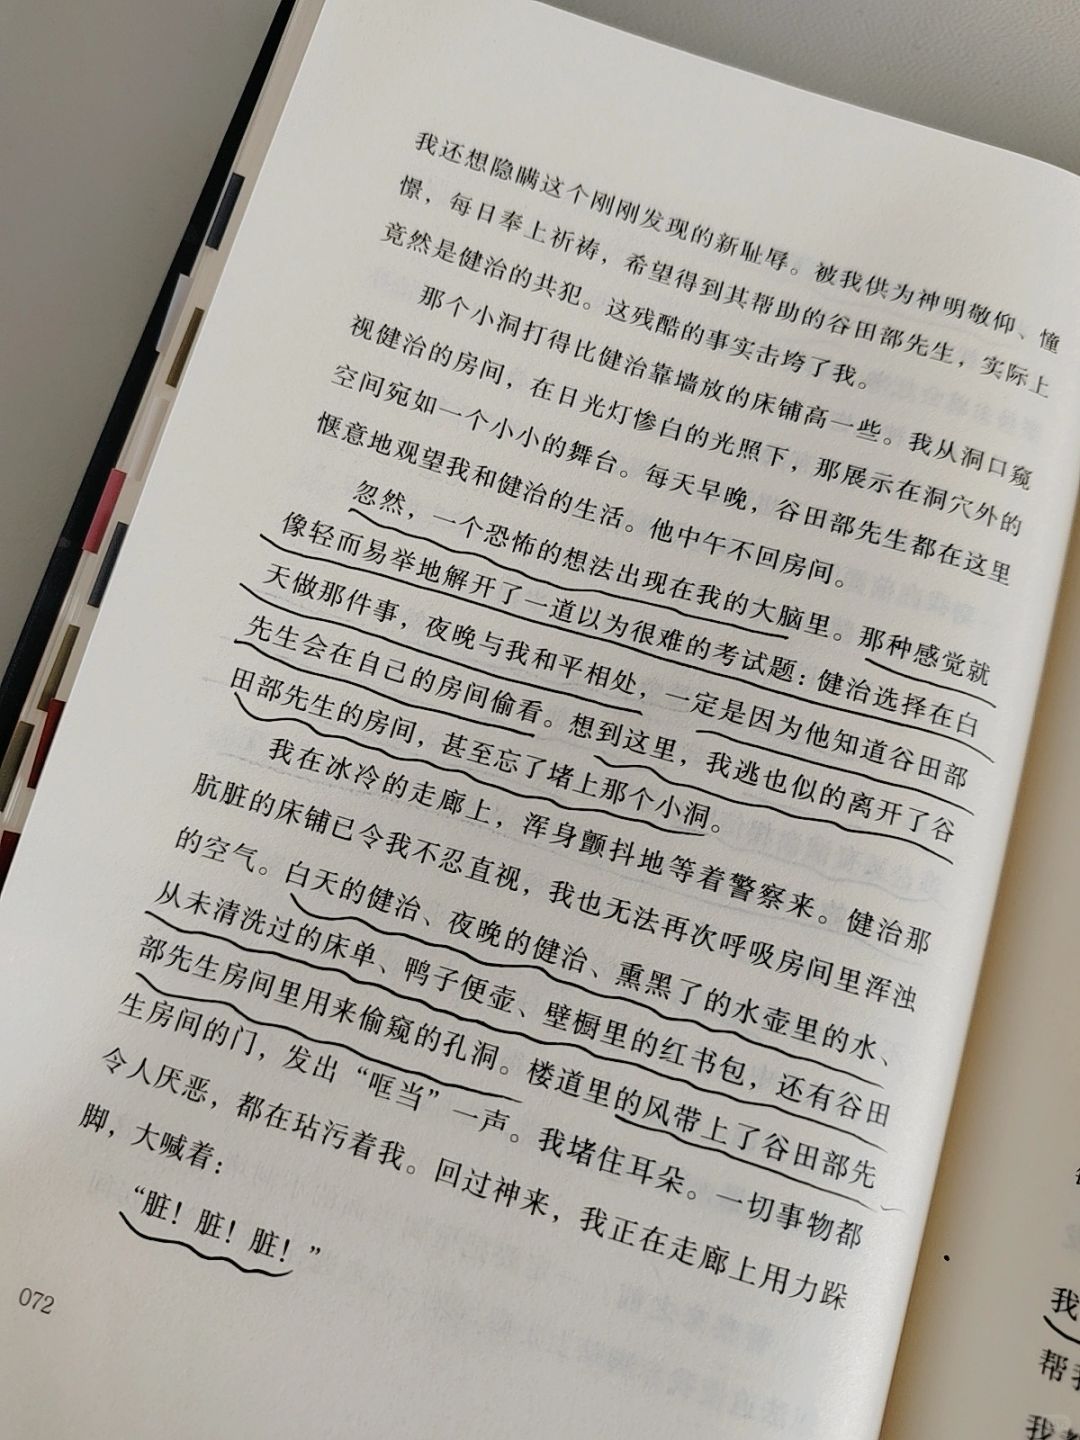 我还想隐瞒这个刚刚发现的新耻辱。被我供为神明敬仰、憧
憬，每日奉上祈祷，希望得到其帮助的谷田部先生，实际上
竟然是健治的共犯。这残酷的事实击垮了我。
那个小洞打得比健治靠墙放的床铺高一些。我从洞口窥
视健治的房间，在日光灯惨白的光照下，那展示在洞穴外的
空间宛如一个小小的舞台。每天早晚，谷田部先生都在这里
惬意地观望我和健治的生活。他中午不回房间。
忽然，一个恐怖的想法出现在我的大脑里。那种感觉就
像轻而易举地解开了一道以为很难的考试题：健治选择在白
天做那件事，夜晚与我和平相处，一定是因为他知道谷田部
先生会在自己的房间偷看。想到这里，我逃也似的离开了谷
田部先生的房间，甚至忘了堵上那个小洞。
我在冰冷的走廊上，浑身颤抖地等着警察来。健治那
肮脏的床铺已令我不忍直视，我也无法再次呼吸房间里浑浊
的空气。白天的健治、夜晚的健治、熏黑了的水壶里的水、
从未清洗过的床单、鸭子便壶、壁橱里的红书包，还有谷田
部先生房间里用来偷窥的孔洞。楼道里的风带上了谷田部先
生房间的门，发出“哐当”一声。我堵住耳朵。一切事物都
令人厌恶，都在玷污着我。回过神来，我正在走廊上用力跺
脚，大喊着：
“脏！脏！脏！”
072
我
帮我
我都